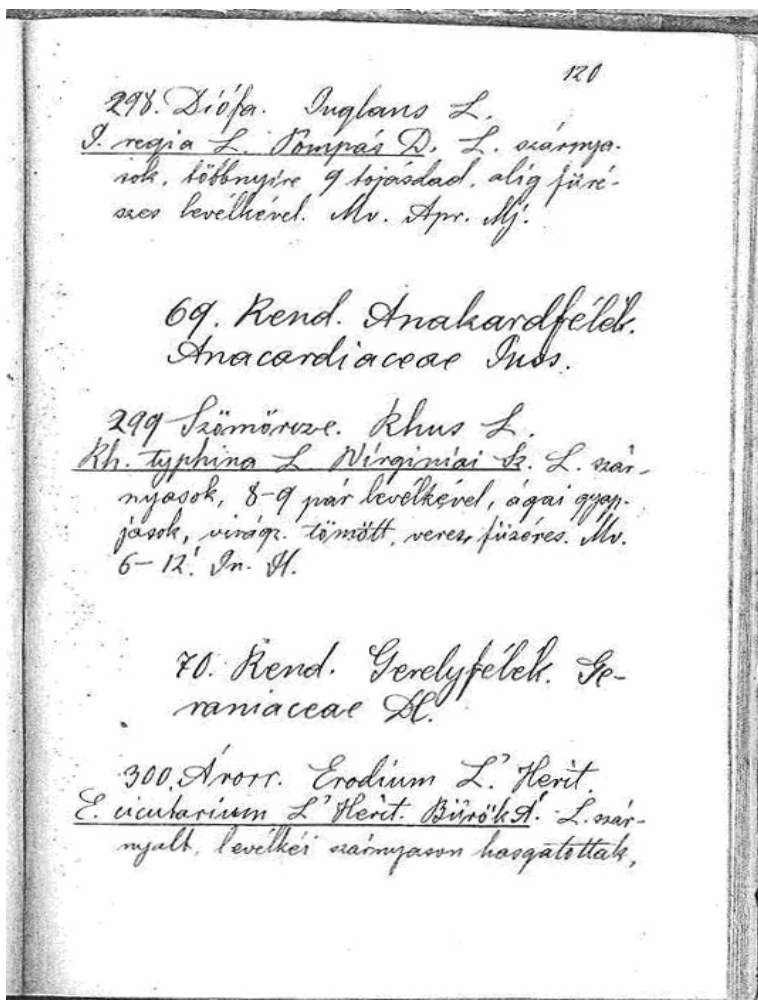 120
298. Diófa. Juglans L.
J. regia L. Pompás D. L. szárnya-
sok, többnyire 9 tojásdad, alig füré-
szes levélkével. Mv. Apr. Mj.
69. Rend. Anakardfélék.
Anacardiaceae Juss.
299 Szömörcze. Rhus L.
Rh. typhina L. Virginiai Sz. L. szár-
nyasok, 8-9 pár levélkével, ágai gyap-
jasok, virágz. tömött, veres, füzéres. Mv.
6-12! Jn. Jl.
70. Rend. Gerelyfélék. Ge-
raniaceae DC.
300. Árorr. Erodium L'Herit.
E. cicutarium L'Herit. Bürök Á. L. szár-
nyalt, levélkéi szárnyason hasgatottak,